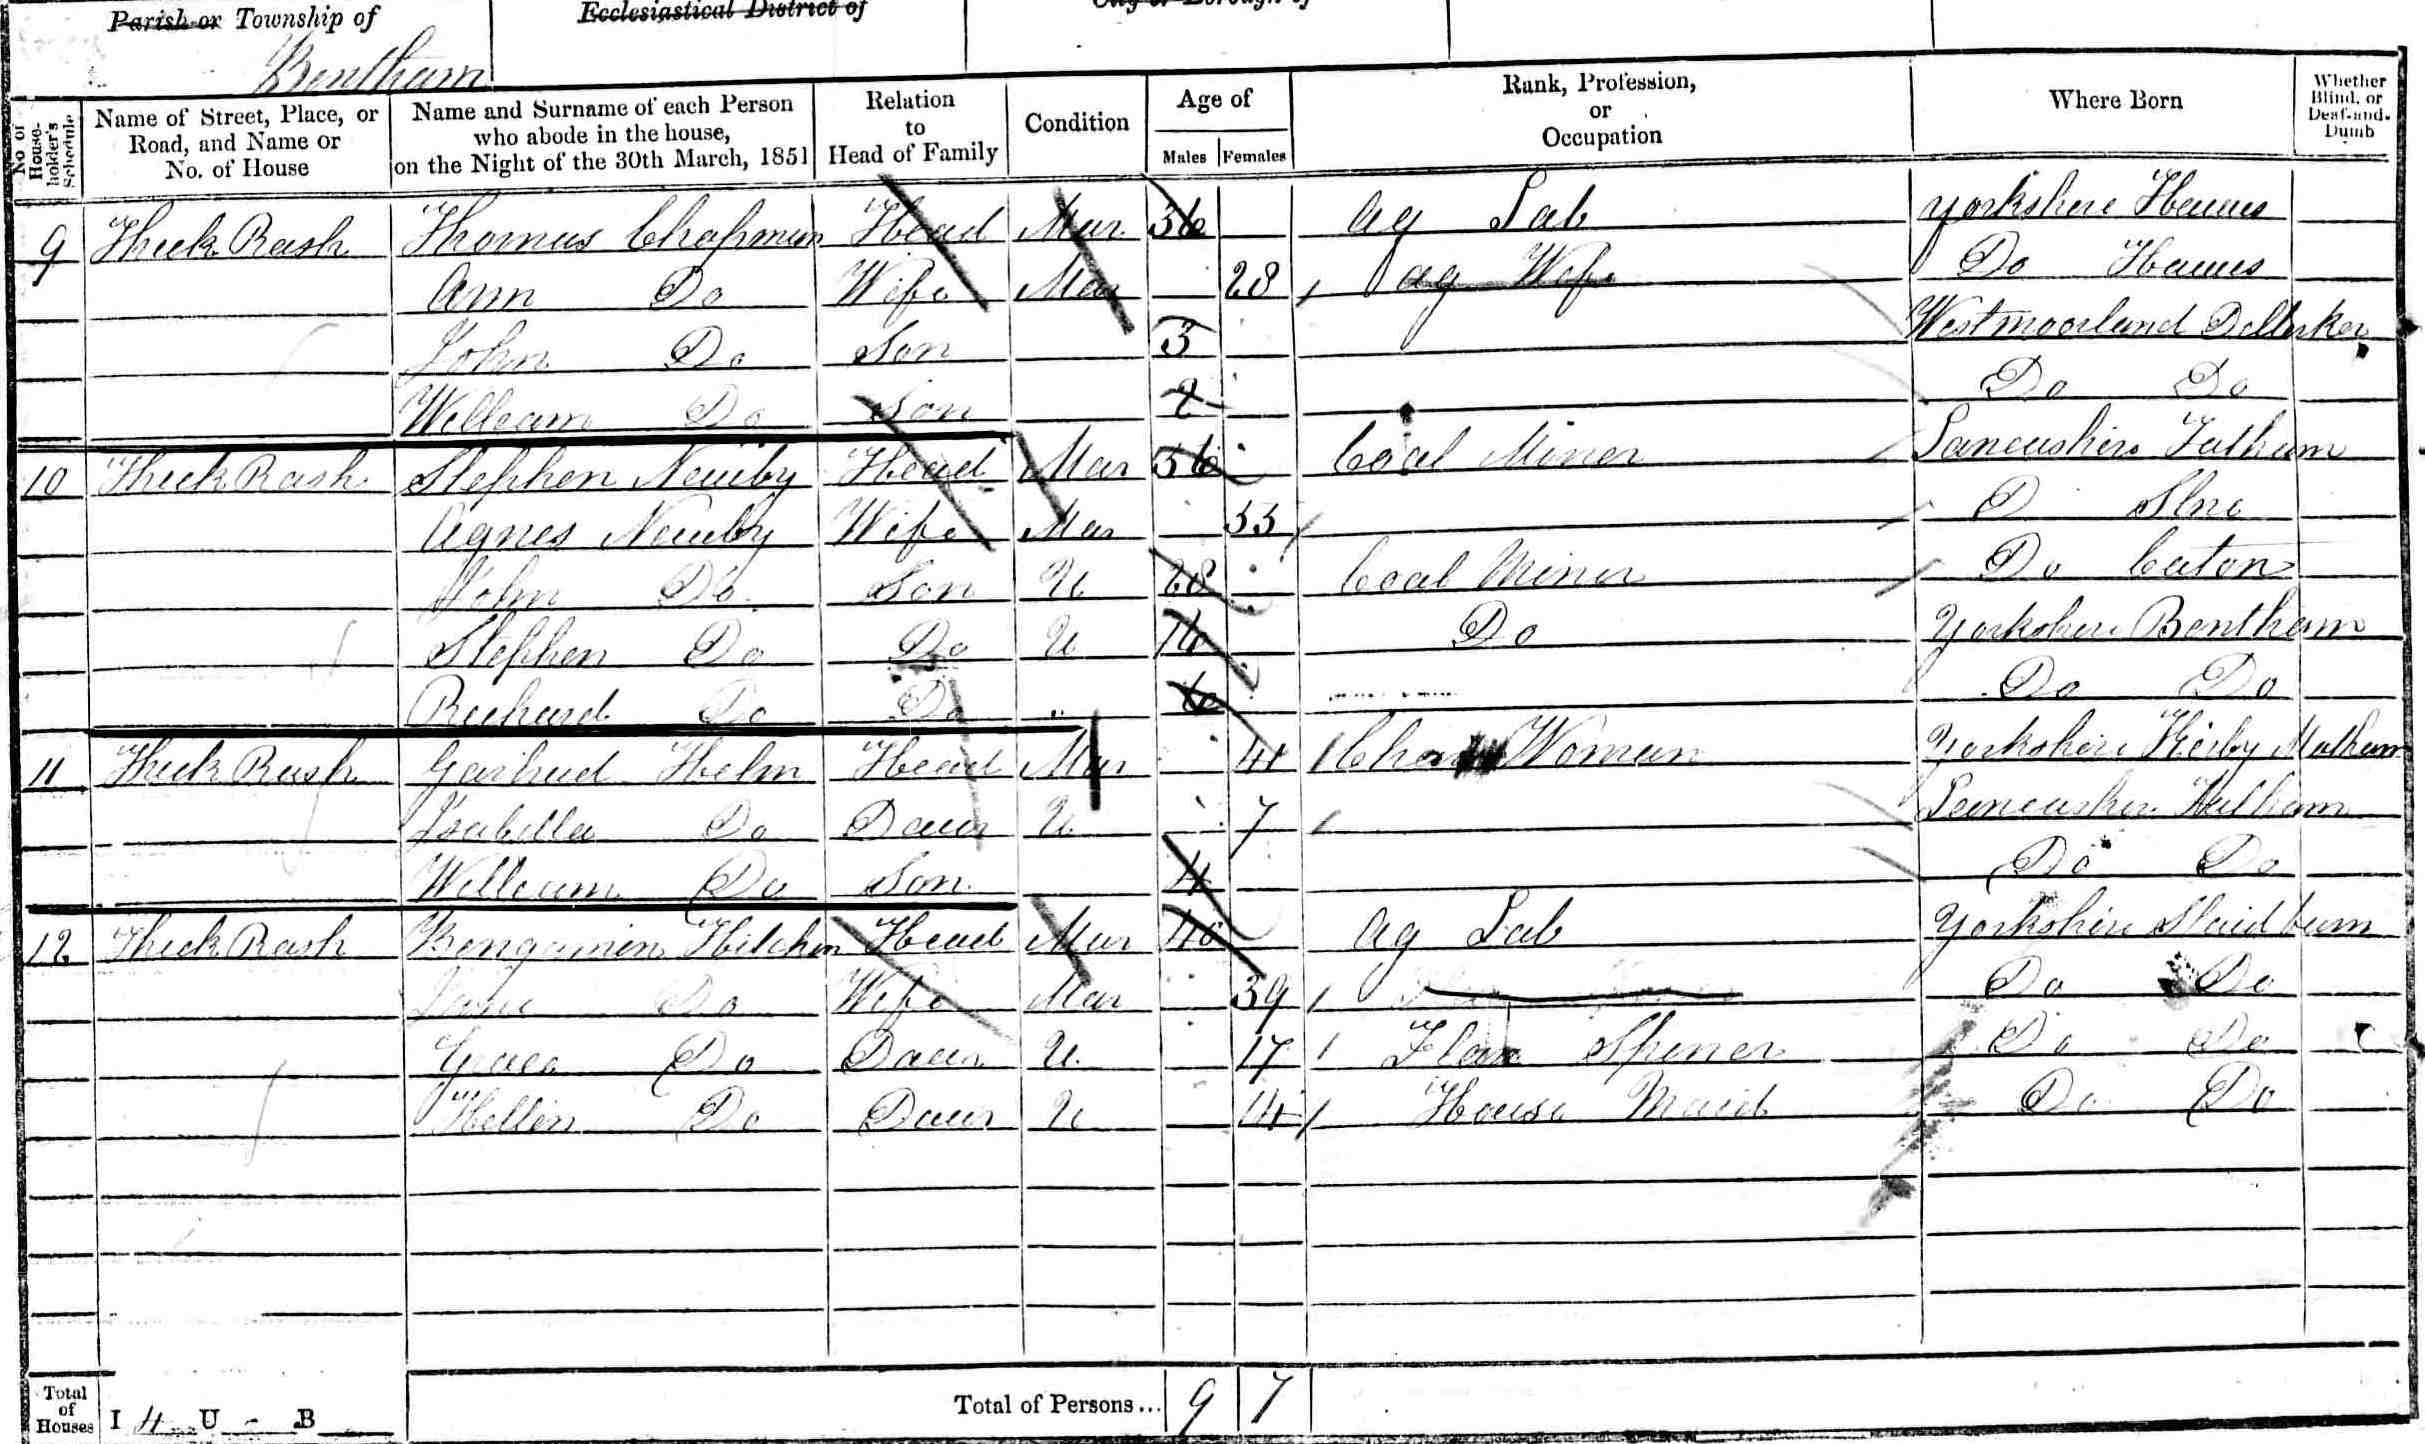 Parish or Township of
Ecclesiastical District of
City or Borough of
Bentham
No of House-holder's Schedule
Name of Street, Place, or Road, and Name or No. of House
Name and Surname of each Person who abode in the house, on the Night of the 30th March, 1851
Relation to Head of Family
Condition
Age of
Males Females
Rank, Profession, or Occupation
Where Born
Whether Blind, or Deaf-and-Dumb
9 Thick Rash Thomas Chapman Head Mar 36 Ag Lab Yorkshire Hawes
Ann Do Wife Mar 28 Ag Wife Do Hawes
John Do Son 3 Westmoorland
William Do Son 2 Do Do
10 Thick Rash Stephen Newby Head Mar 56 Coal Miner Lancashire Tatham
Agnes Newby Wife Mar 55 D
John Do Son U 28 Coal Miner Do Caton
Stephen Do Do U 16 Do Yorkshire Bentham
Richard Do Do Do Do
11 Thick Rash Helm Head Mar 41 Char Woman Yorkshire Kirby Malham
Isabella Do Daur U 7 Lancashire
William Do Son 4 Do Do
12 Thick Rash Bengamin Hitchin Head Mar 40 Ag Lab Yorkshire Slaidburn
Jane Do Wife Mar 39 Do Do
Grace Do Daur U 17 Flax Spiner Do Do
Hellin Do Daur U 14 House Maid Do Do
Total of Houses I 4 U - B
Total of Persons... 9 7